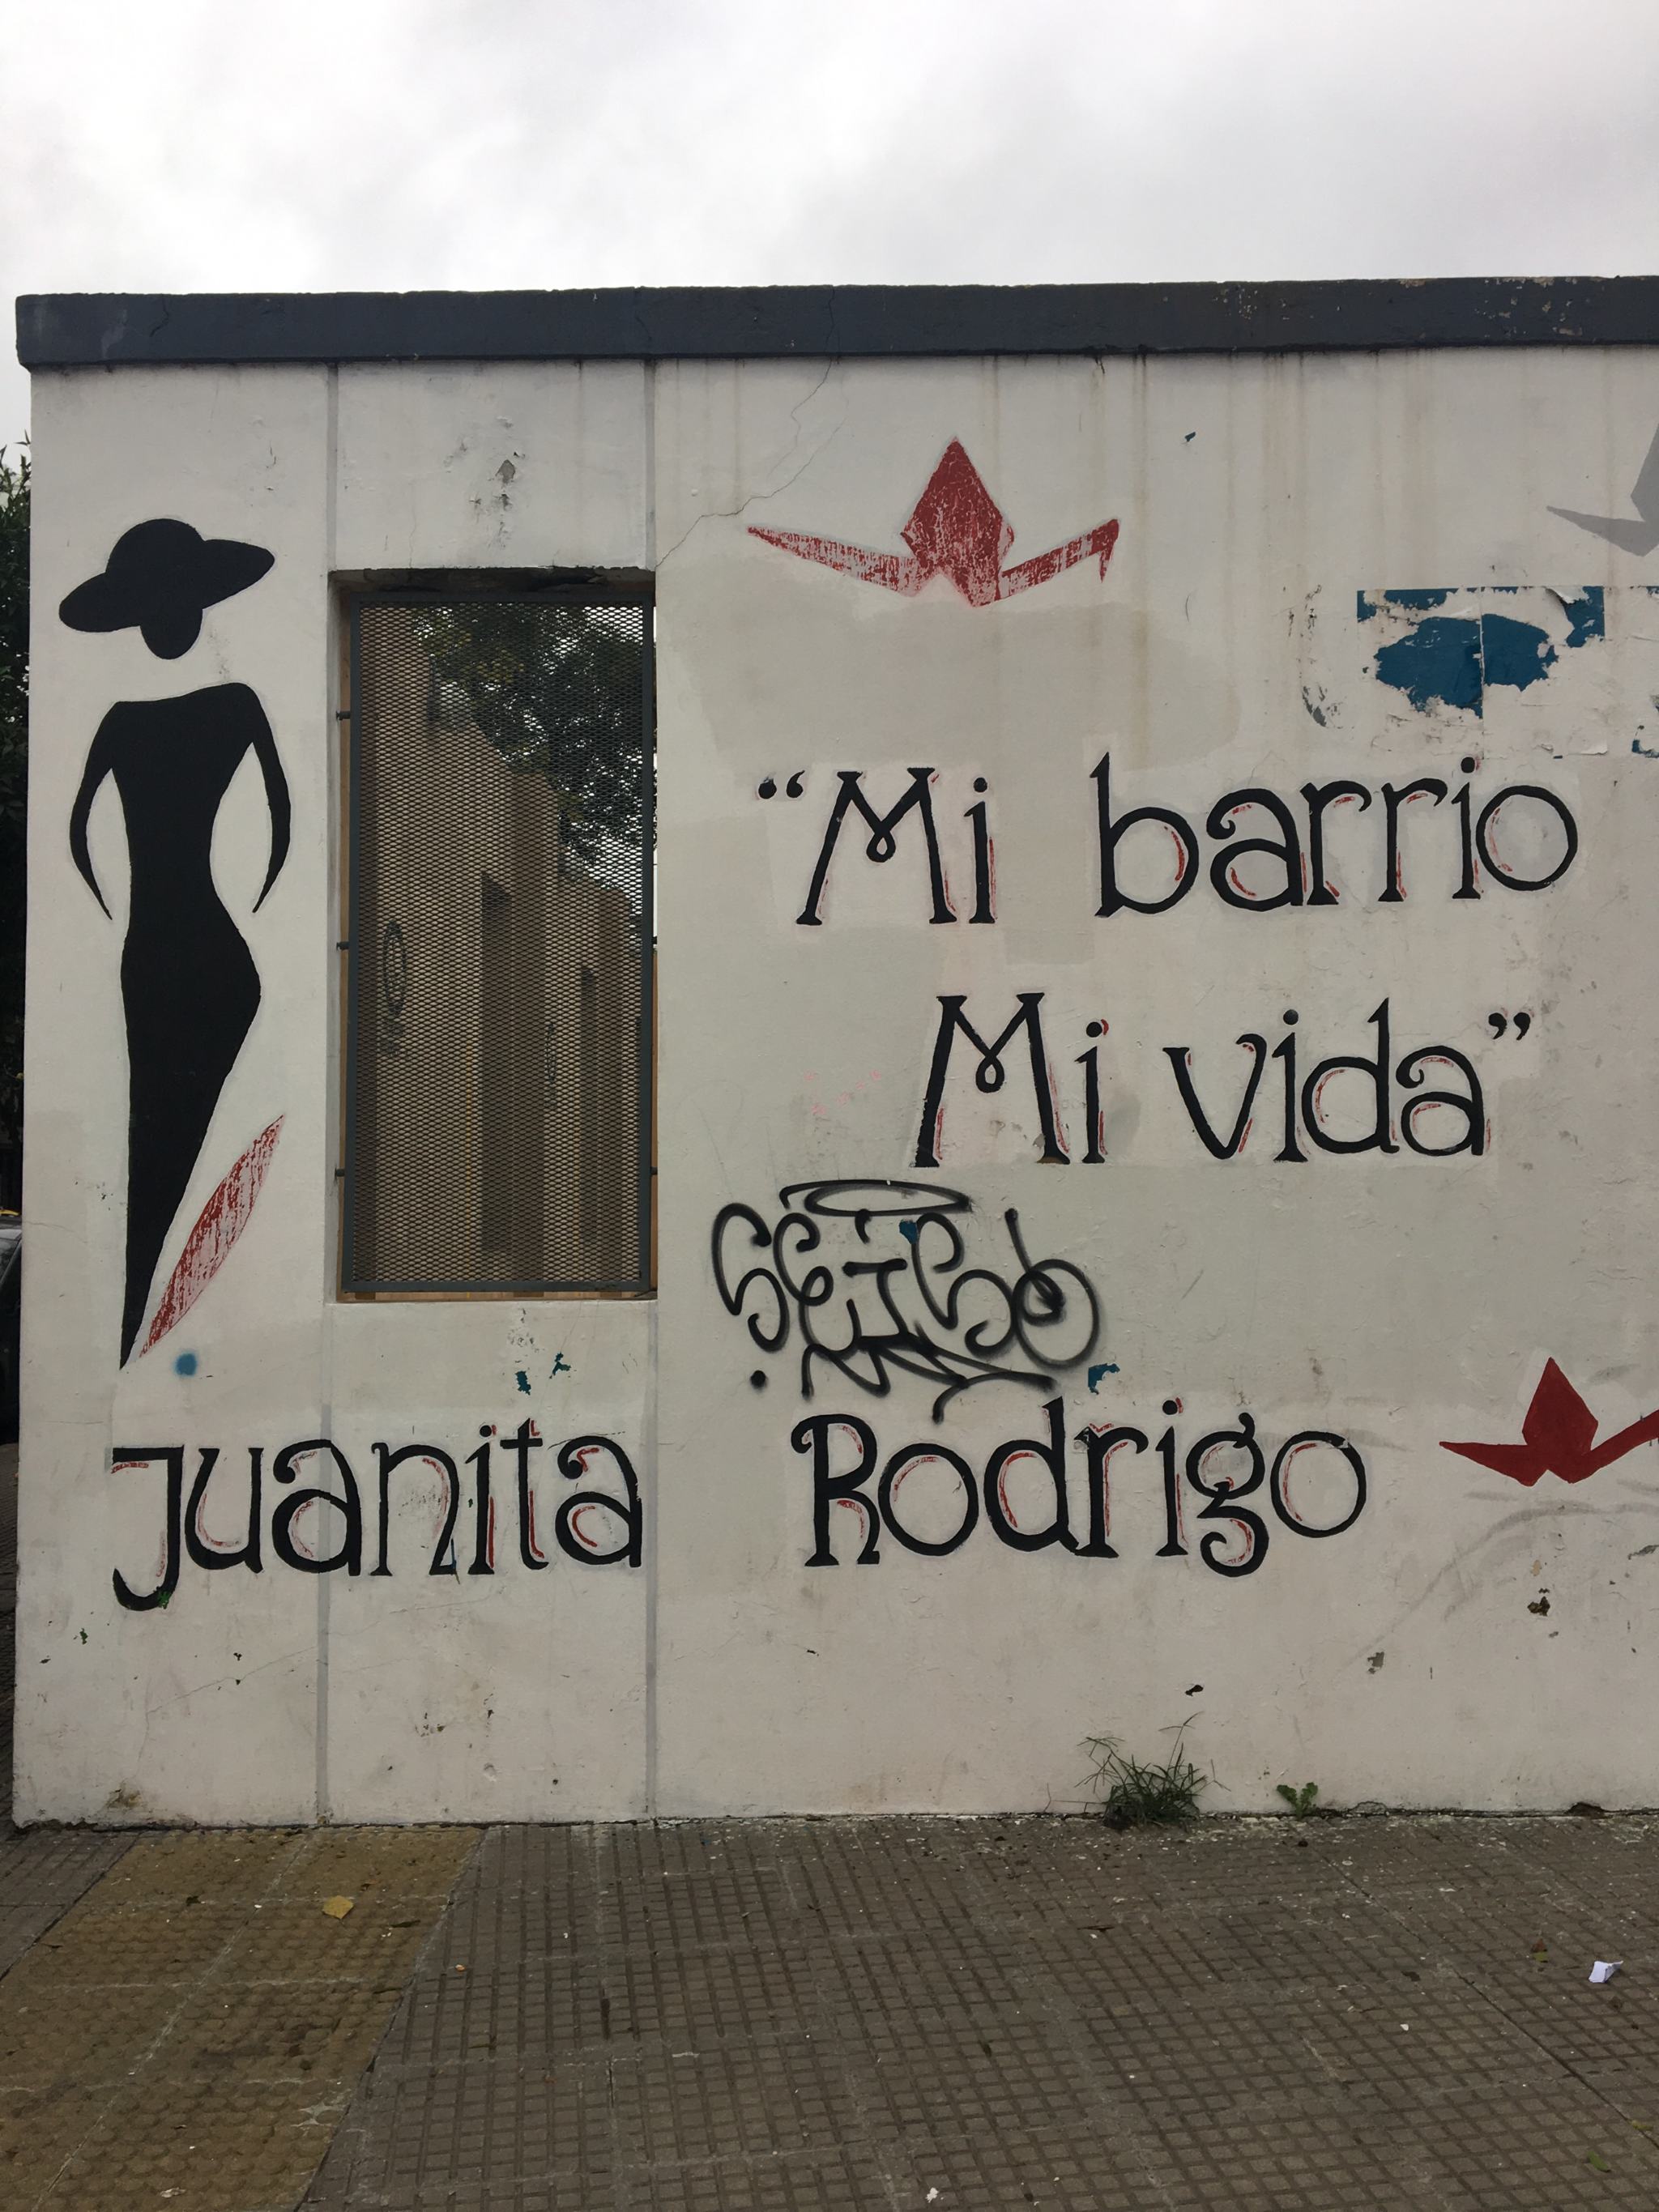 “Mi barrio
Mi vida”
Juanita Rodrigo